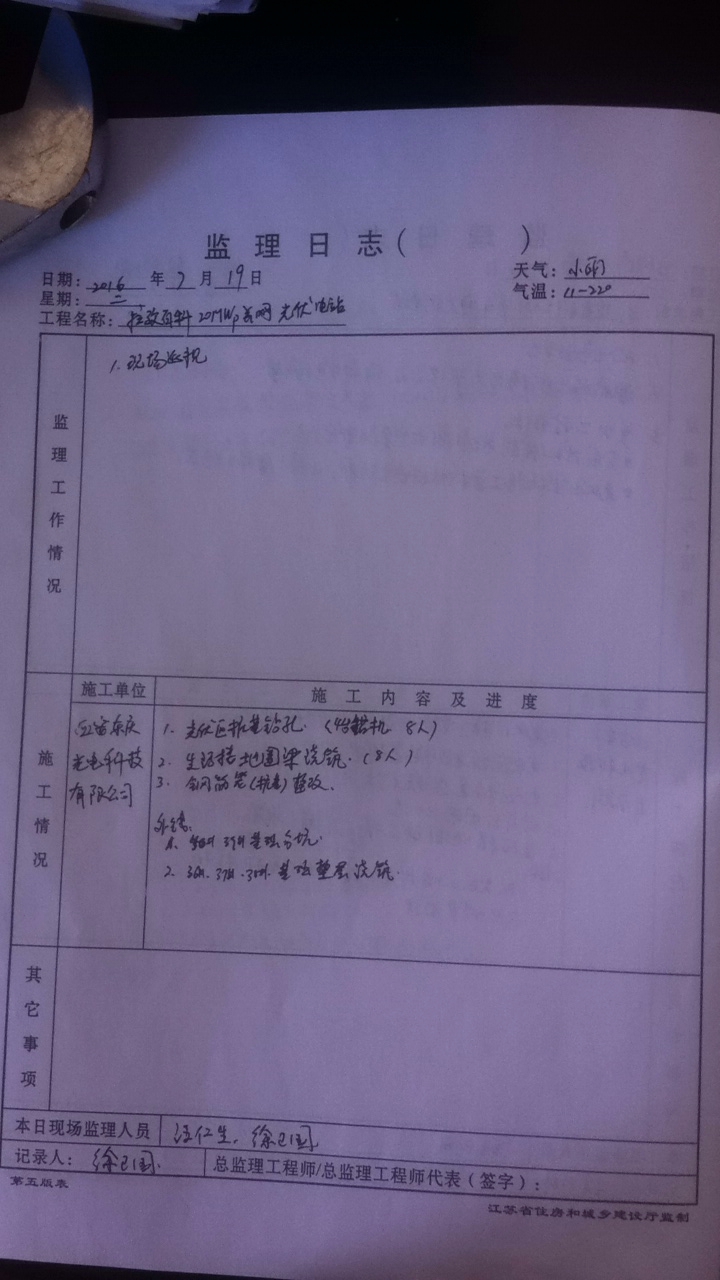 监理日志( )
日期: 2016 年 7 月 19 日 天气: 小雨
星期: 二 气温: 11-220
工程名称: 20MWp 光伏电站
监理工作情况
1. 现场巡视
施工情况
施工单位 施工内容及进度
光电科技
有限公司
1. 光伏区桩基钻孔. 8人)
2. 生活楼地圈梁浇筑. (8人)
3. 钢筋笼 整改.
外线:
1. 基础分坑.
2. 36#. 37#. 38#. 基础垫层浇筑.
其它事项
本日现场监理人员 汪仁生、徐卫国
记录人: 徐卫国 总监理工程师/总监理工程师代表(签字):
第五版表 江苏省住房和城乡建设厅监制